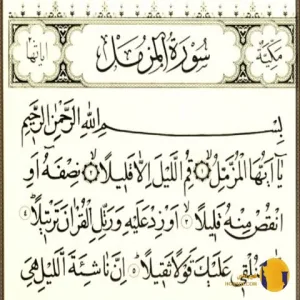 مكية سورة المزمل آياتها ٢٠
بِسْمِ اللَّهِ الرَّحْمَٰنِ الرَّحِيمِ
يَا أَيُّهَا الْمُزَّمِّلُ ١ قُمِ اللَّيْلَ إِلَّا قَلِيلًا ٢ نِصْفَهُ أَوِ
انْقُصْ مِنْهُ قَلِيلًا ٣ أَوْ زِدْ عَلَيْهِ وَرَتِّلِ الْقُرْآنَ تَرْتِيلًا ٤
عَلَيْكَ قَوْلًا ثَقِيلًا ٥ إِنَّ نَاشِئَةَ اللَّيْلِ هِيَ